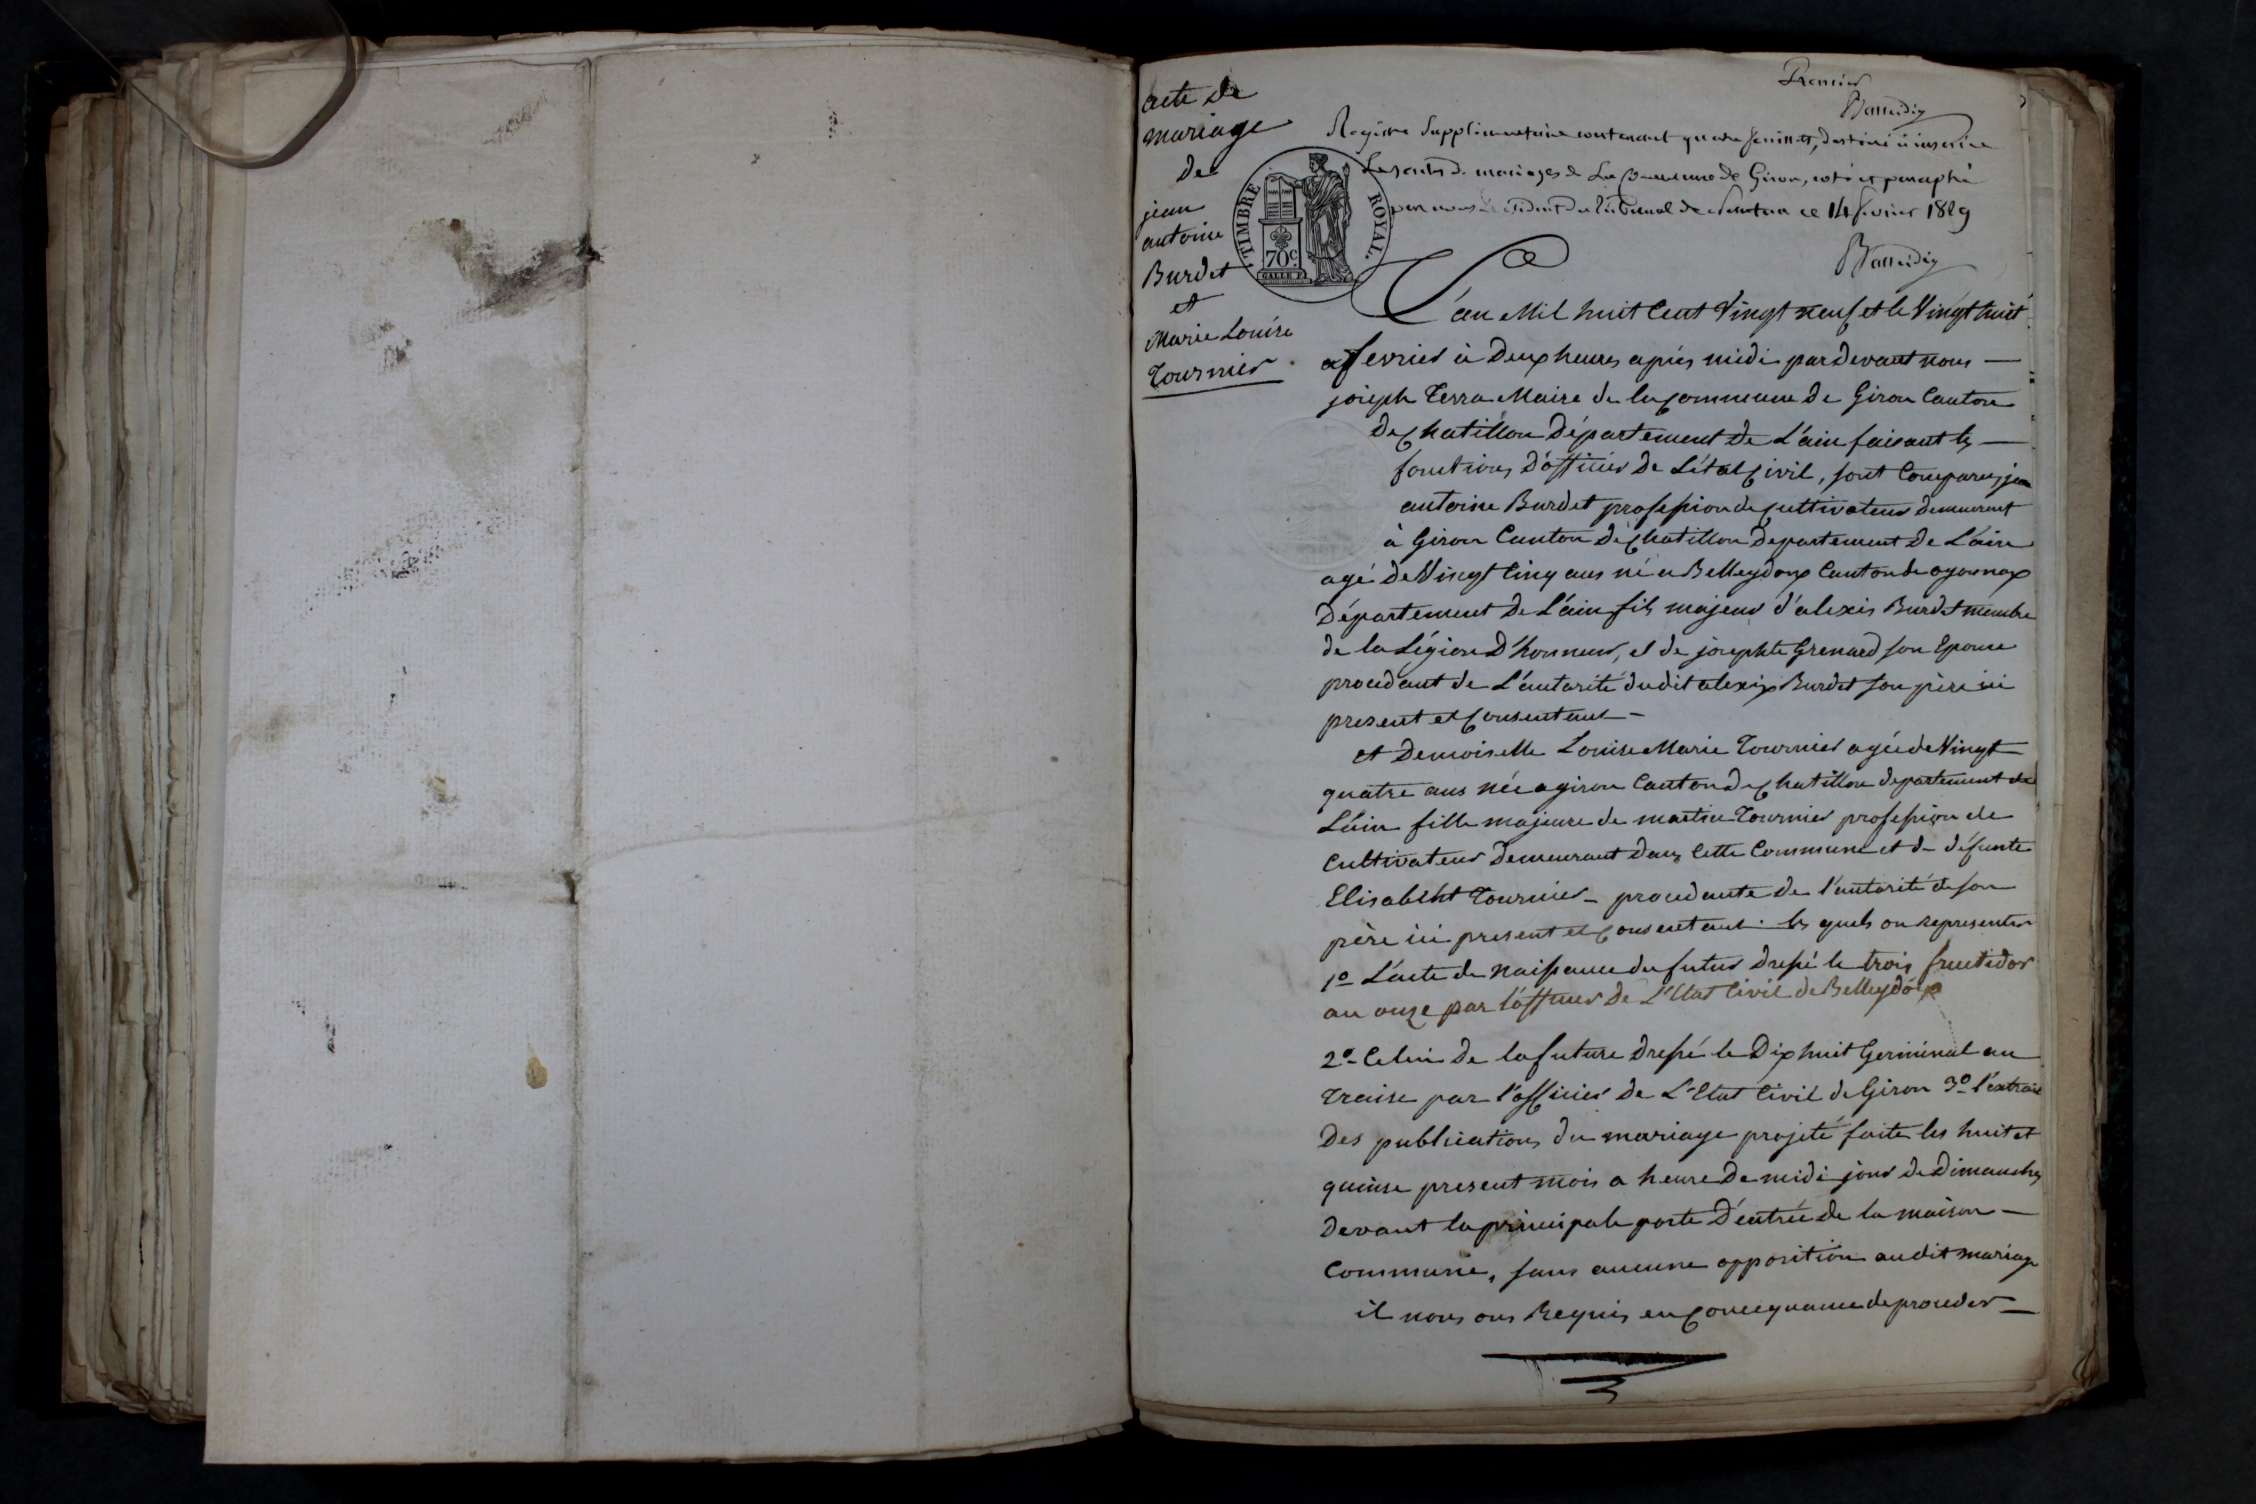 acte de
mariage
de
jean
antoine
Burdet
et
Marie Louise
Tournier
Premier
Registre Supplementaire contenant quatre feuillets, destiné à inscrire
Les actes de mariages de La Commune de Giron, coté et paraphé
par nous Président du tribunal de Nantua ce 14 fevrier 1829
TIMBRE ROYAL
70c
GALLE F.
L'an Mil huit Cent Vingt neuf et le Vingt huit
fevrier à Deux heures après midi pardevant nous
joseph Terra Maire de la Commune de Giron Canton
de Chatillon Département de L'ain faisant les
fonctions d'officier de L'état Civil, sont Comparus jean
antoine Burdet profession de Cultivateur demeurant
à Giron Canton de Chatillon Departement de L'ain
agé de Vingt Cinq ans né a Belleydoux Canton de oyonnax
Département de L'ain fils majeur d'alexis Burdet membre
de la Légion D'honneur, et de josephte Grenard son Epouse
procedant de L'autorité dudit alexis Burdet son père ici
present et Consentant
et Demoiselle Louise Marie Tournier agée de Vingt
quatre ans née a giron Canton de Chatillon departement de
L'ain fille majeure de martin Tournier profession de
Cultivateur Demeurant dans Cette Commune et de défunte
Elisabeht Tournier procedante de l'autorité de son
père ici present et Consentant. les quels on representer
1º L'acte de Naissance du futur dressé le trois fructidor
an onze par l'officier de L'Etat Civil de Belleydoux
2º Celui de la future dressé le Dix huit Germinal an
Traise par l'officier de L'Etat Civil de Giron 3º l'extrait
Des publications du mariage projeté faite les huit et
quinse present mois a heure De midi jour de Dimanche
devant la principale porte D'entrée de la maison
Commune, sans aucune opposition audit mariage
il nous ons Requis en Concequance de proceder